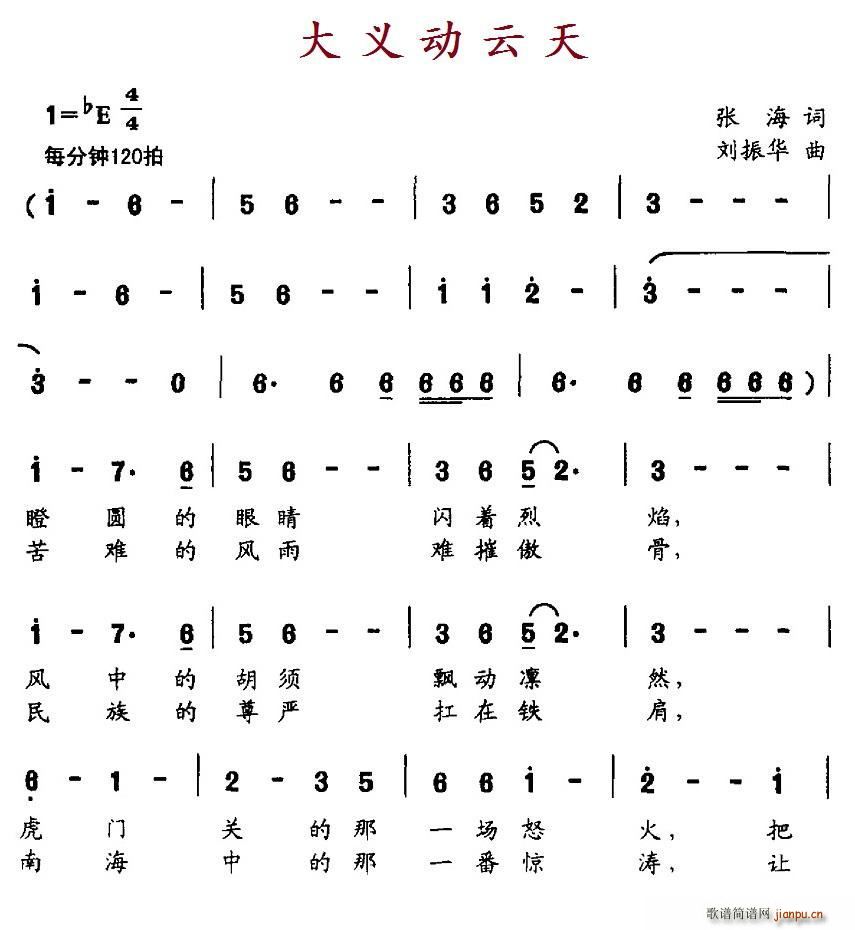 大义动云天
1=♭E 4/4
张 海 词
每分钟120拍
刘振华 曲
( i̇ - 6 - | 5 6 - - | 3 6 5 2 | 3 - - - |
i̇ - 6 - | 5 6 - - | i̇ i̇ 2̇ - | 3̇ - - - |
3̇ - - 0 | 6· 6 6 6 6 6 | 6· 6 6 6 6 6 )
i̇ - 7· 6 | 5 6 - - | 3 6 5 2· | 3 - - - |
瞪 圆 的 眼 睛 闪 着 烈 焰,
苦 难 的 风 雨 难 摧 傲 骨,
i̇ - 7· 6 | 5 6 - - | 3 6 5 2· | 3 - - - |
风 中 的 胡 须 飘 动 凛 然,
民 族 的 尊 严 扛 在 铁 肩,
6̣ - 1 - | 2 - 3 5 | 6 6 i̇ - | 2̇ - - i̇ |
虎 门 关 的 那 一 场 怒 火, 把
南 海 中 的 那 一 番 惊 涛, 让
歌谱简谱网 jianpu.cn